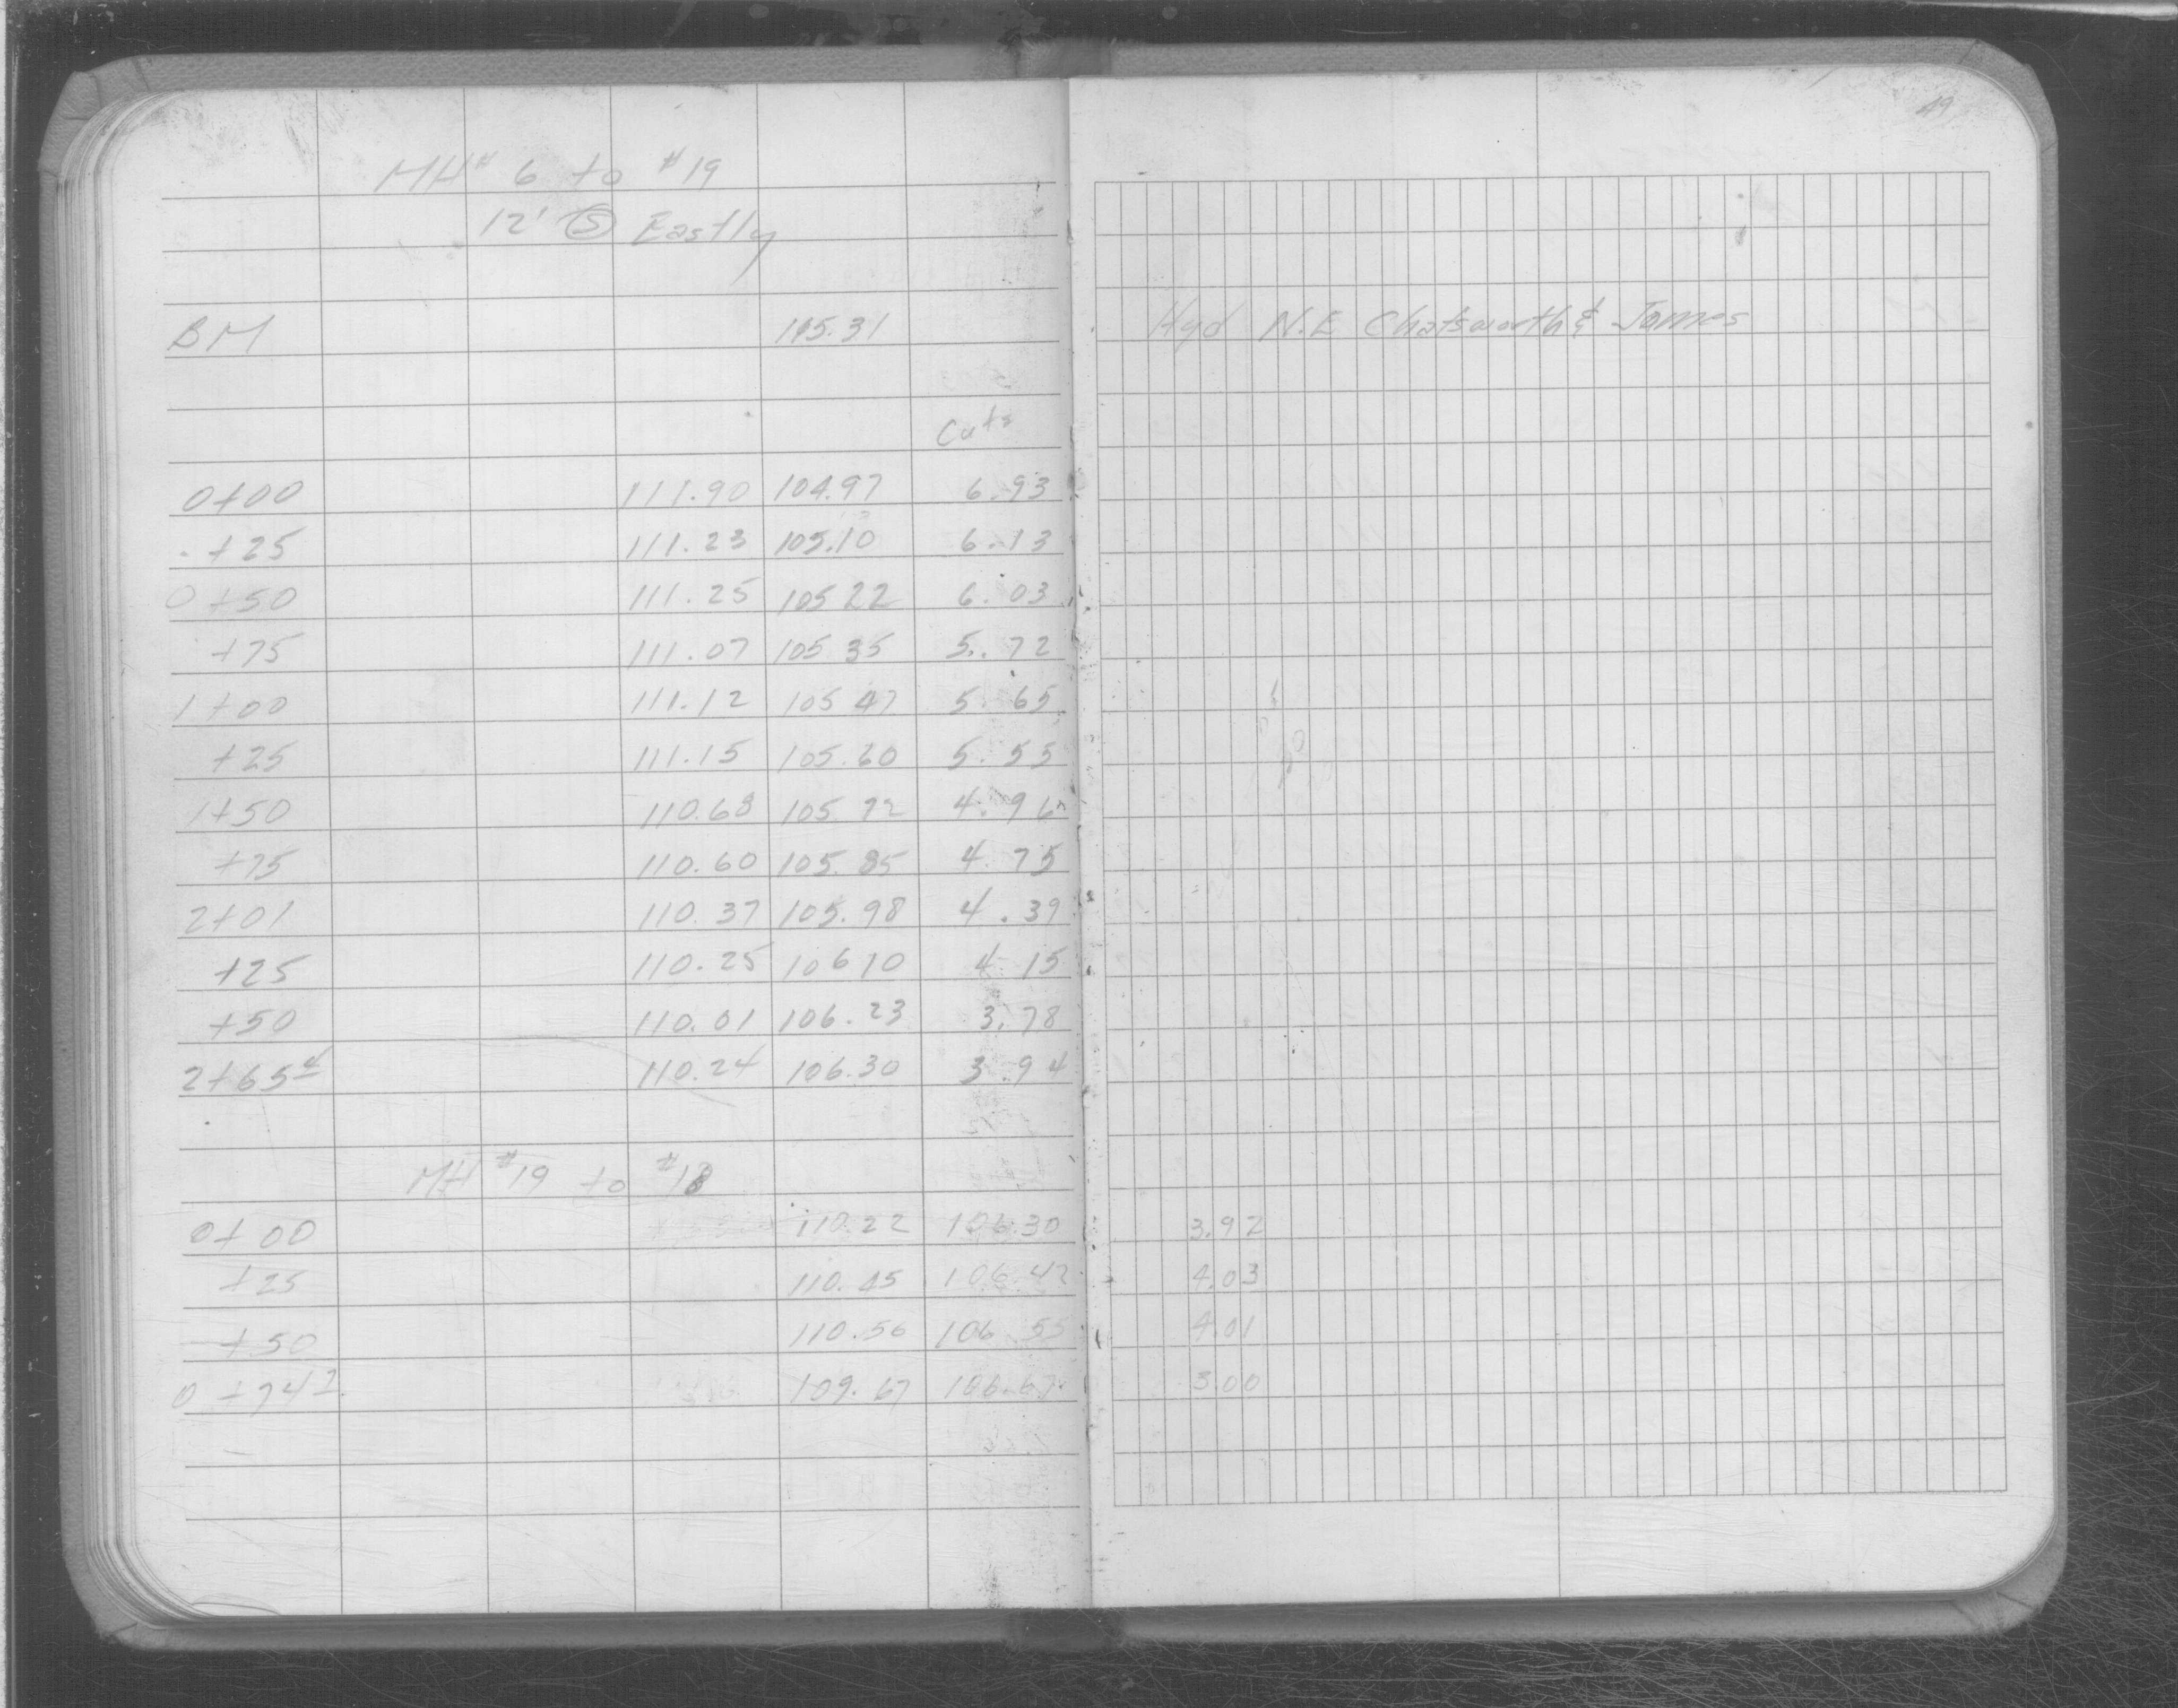 49
MH# 6 to #19
12' Ⓢ Eastly
BM 115.31 Hyd N.E Chatsworth & James
Cuts
0+00 111.90 104.97 6.93
+25 111.23 105.10 6.13
0+50 111.25 105 22 6.03
+75 111.07 105 35 5.72
1+00 111.12 105 47 5.65
+25 111.15 105.60 5.55
1+50 110.68 105 72 4.96
+75 110.60 105.85 4.75
2+01 110.37 105.98 4.39
+25 110.25 106 10 4 15
+50 110.01 106.23 3.78
2+65⁴ 110.24 106.30 3.94
MH #19 to #18
0+00 110.22 106.30 3.92
+25 110.45 106.42 4.03
+50 110.56 106 55 4.01
0+74² 109.67 106.67 3.00